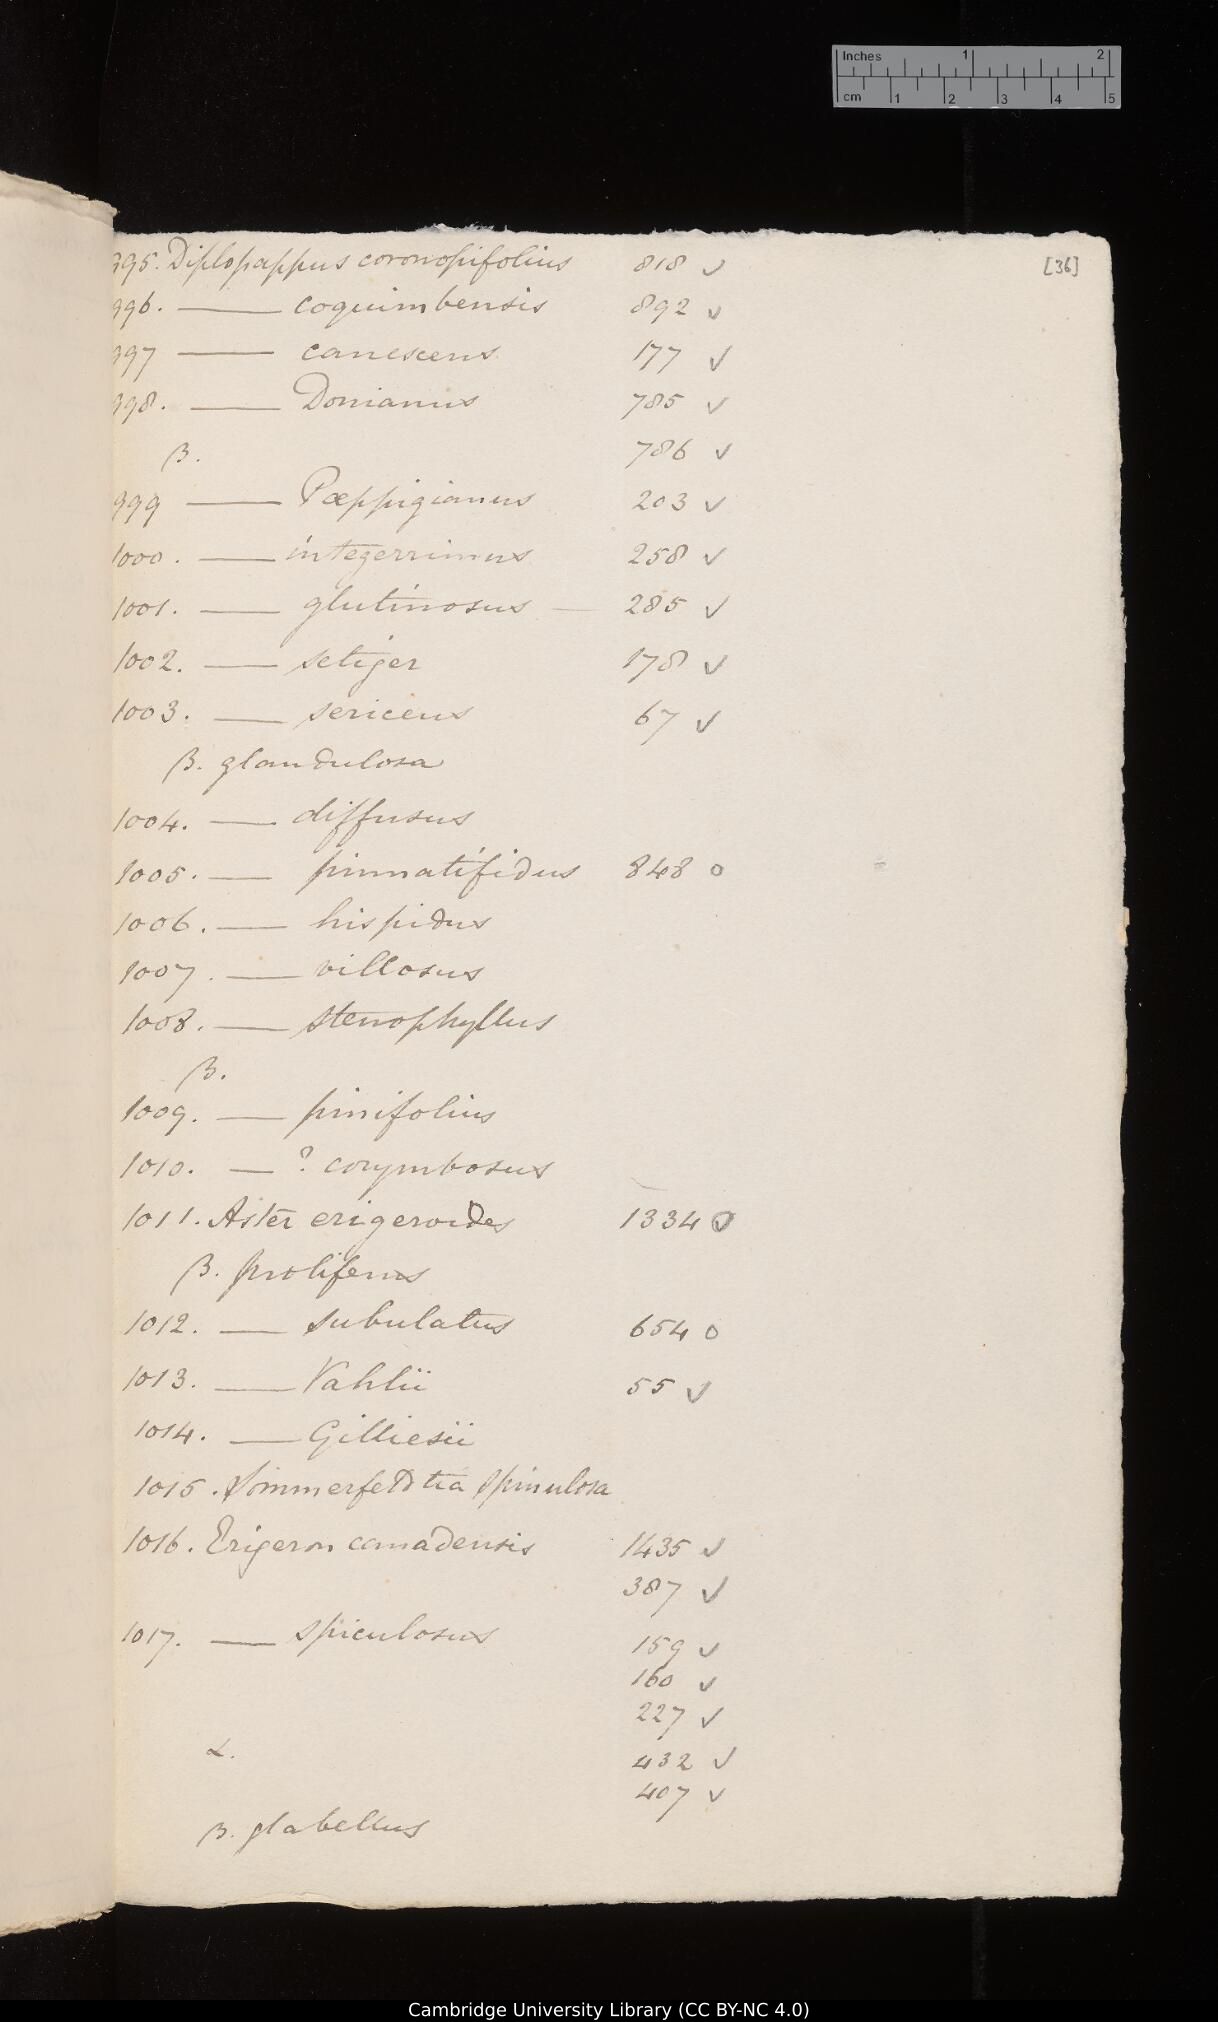 Inches 1 2
cm 1 2 3 4 5
[36]
995. Diplopappus coronopifolius 818 ✓
996. —— coquimbensis 892 ✓
997 —— canescens 177 ✓
998. —— Donianus 785 ✓
β. 786 ✓
999 —— Pœppigianus 203 ✓
1000. —— integerrimus 258 ✓
1001. —— glutinosus — 285 ✓
1002. —— setiger 178 ✓
1003. —— sericeus 67 ✓
β. glandulosa
1004. —— diffusus
1005. —— pinnatifidus 848 o
1006. —— hispidus
1007. —— villosus
1008. —— stenophyllus
β.
1009. —— pinifolius
1010. —— ? corymbosus
1011. Aster erigeroides 1334 o
β. proliferus
1012. —— subulatus 654 o
1013. —— Vahlii 55 ✓
1014. —— Gilliesii
1015. Sommerfeldtia spinulosa
1016. Erigeron canadensis 1435 ✓
387 ✓
1017. —— spiculosus 159 ✓
160 ✓
227 ✓
α. 432 ✓
407 ✓
β. glabellus
Cambridge University Library (CC BY-NC 4.0)